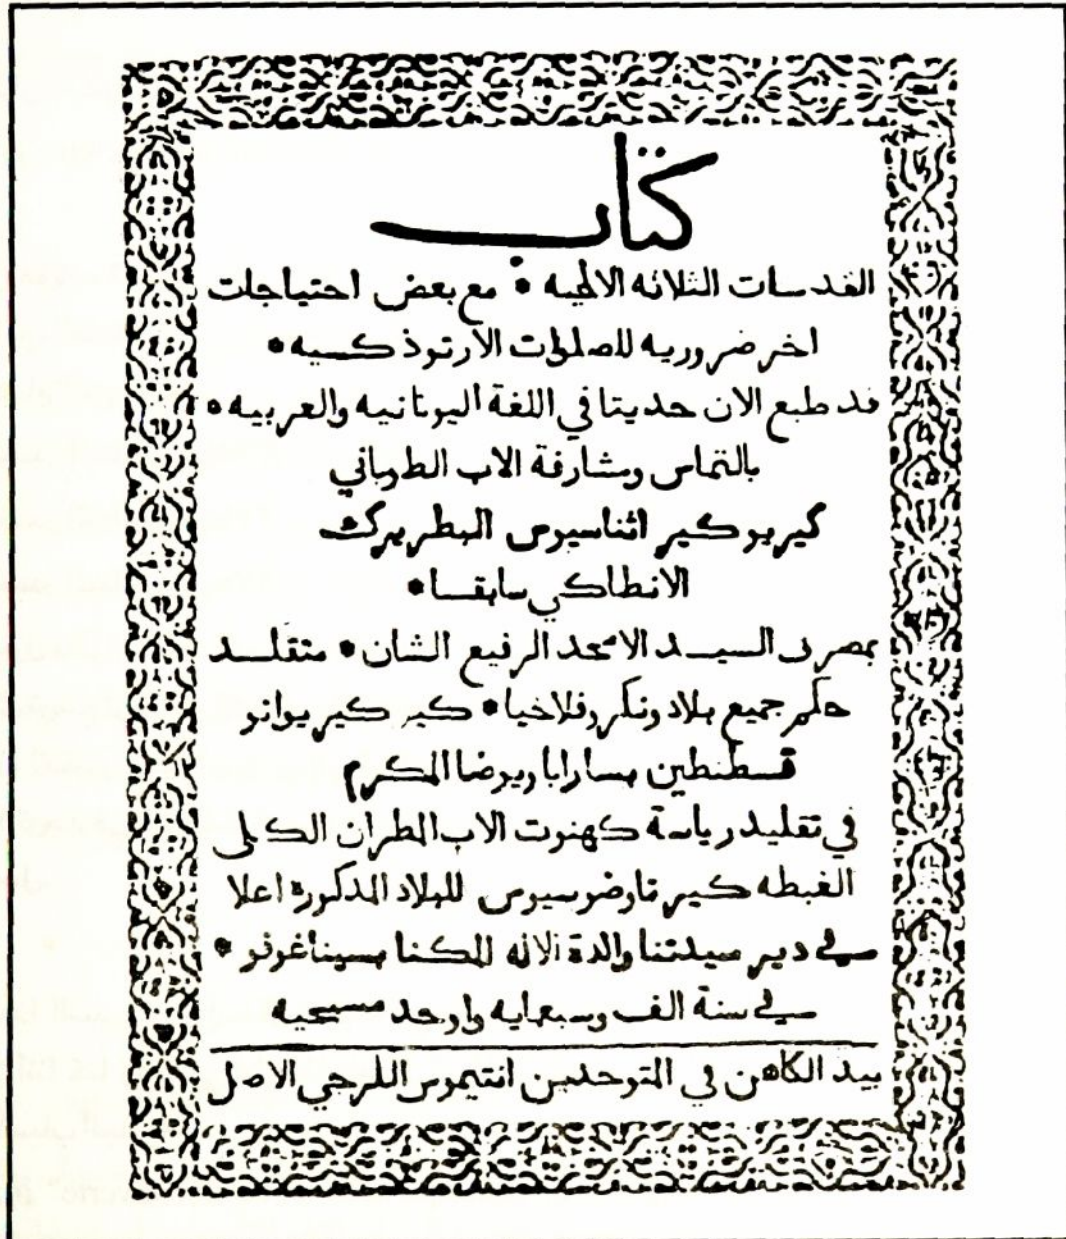 كتاب
القدسات الثلاثه الالهيه * مع بعض احتياجات
اخر ضروريه للصلوات الارتوذكسيه *
قد طبع الان حديثا في اللغة اليونانيه والعربيه *
بالتماس ومشارفة الاب الطوباني
كيريو كير اثناسيوس البطريرك
الانطاكي سابقا *
بمصرف السيد الامجد الرفيع الشان * متقلد
حكم جميع بلاد ونكروفلاخيا * كير كير يوانو
قسطنطين بسارابا ويرضا المكرم
في تقليد رياسة كهنوت الاب المطران الكلي
الغبطه كير تاوضوسيوس للبلاد المذكورة اعلا
في دير سيدتنا والدة الاله المكنا بسيناغوفو *
في سنة الف وسبعمايه واوحد مسيحيه
بيد الكاهن في المتوحدين انتيموس الكرجي الاصل